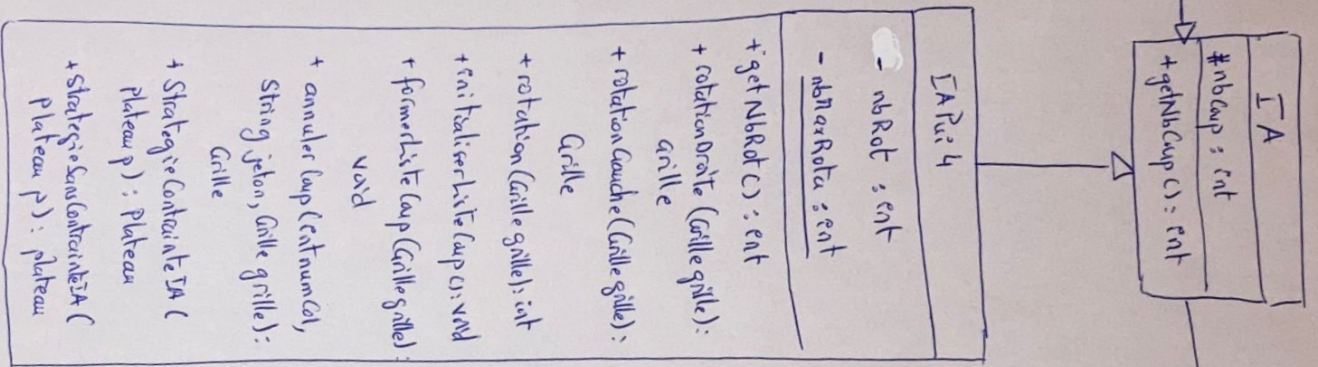 IA
#nbCoup : int
+getNbCoup() : int
IAPui4
- nbRot : int
- nbMaxRota : int
+getNbRot() : int
+ rotationDroite (Grille grille) :
Grille
+ rotationGauche (Grille grille) :
Grille
+ rotation (Grille grille) : int
+initialiserListeCoup() : void
+ formerListeCoup (Grille grille) :
void
+ annulerCoup (int numCol,
String jeton, Grille grille) :
Grille
+ StrategieContrainteIA (
Plateau p) : Plateau
+ StrategieSansContrainteIA (
plateau p) : plateau